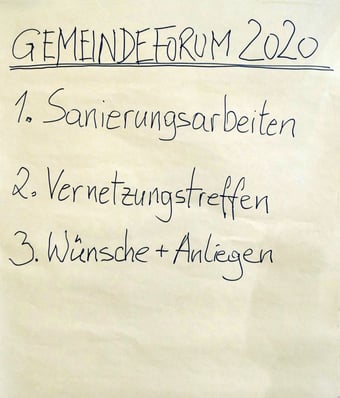 GEMEINDEFORUM 2020
1. Sanierungsarbeiten
2. Vernetzungstreffen
3. Wünsche + Anliegen